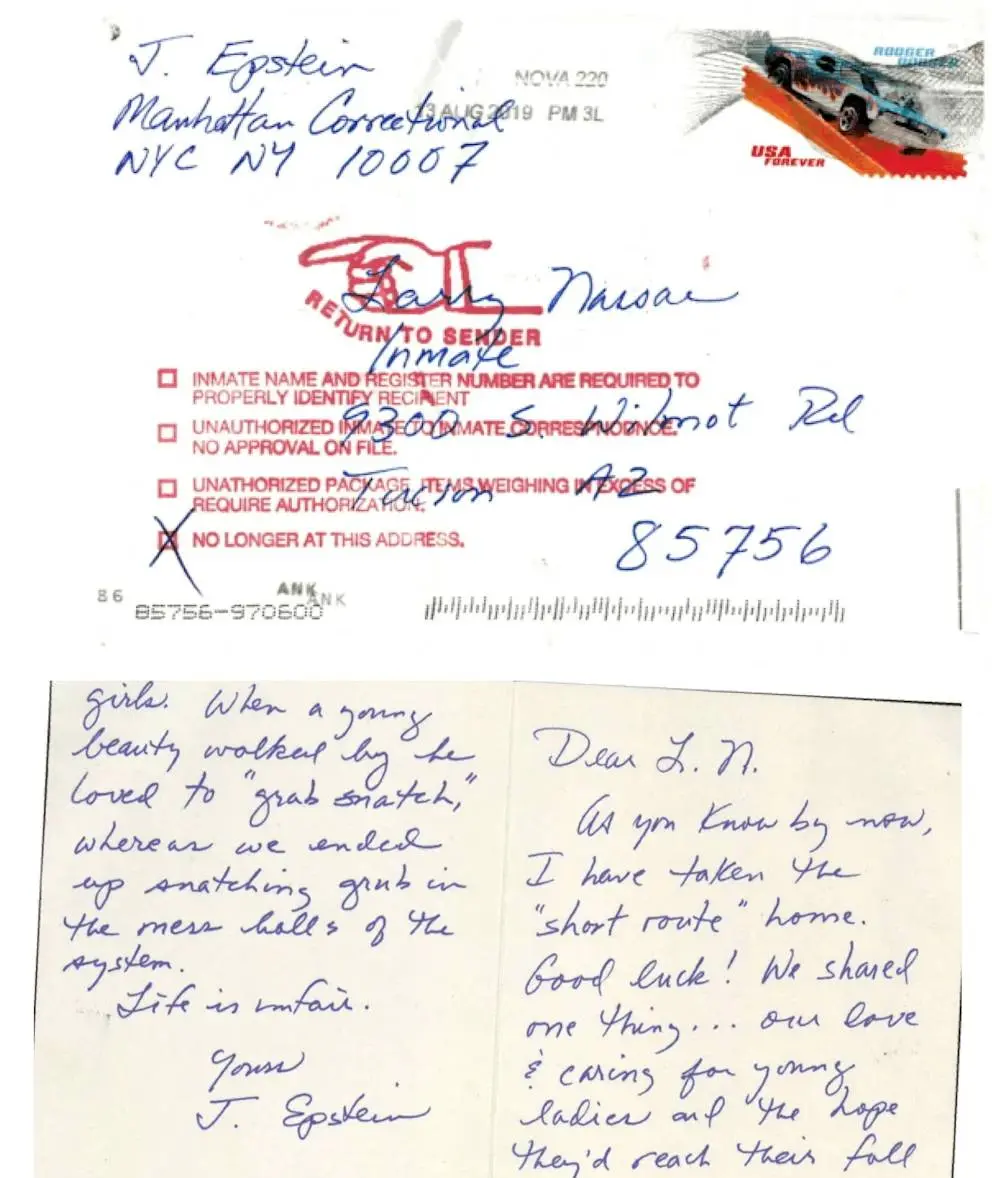 J. Epstein
Manhattan Correctional
NYC NY 10007
NOVA 220
13 AUG 2019 PM 3L
RODGER
DODGER
USA
FOREVER
Larry Nassar
Inmate
9300 S. Wilmot Rd
Tucson AZ
85756
RETURN TO SENDER
INMATE NAME AND REGISTER NUMBER ARE REQUIRED TO
PROPERLY IDENTIFY RECIPIENT
UNAUTHORIZED INMATE TO INMATE CORRESPNODNCE.
NO APPROVAL ON FILE.
UNATHORIZED PACKAGE, ITEMS WEIGHING IN EXCESS OF
REQUIRE AUTHORIZATION.
X NO LONGER AT THIS ADDRESS.
86
ANK
ANK
85756-970600
Dear L. N.
As you know by now,
I have taken the
"short route" home.
Good luck! We shared
one thing... our love
& caring for young
ladies and the hope
they'd reach their full
girls. When a young
beauty walked by he
loved to "grab snatch,"
whereas we ended
up snatching grub in
the mess halls of the
system.
Life is unfair.
Yours
J. Epstein